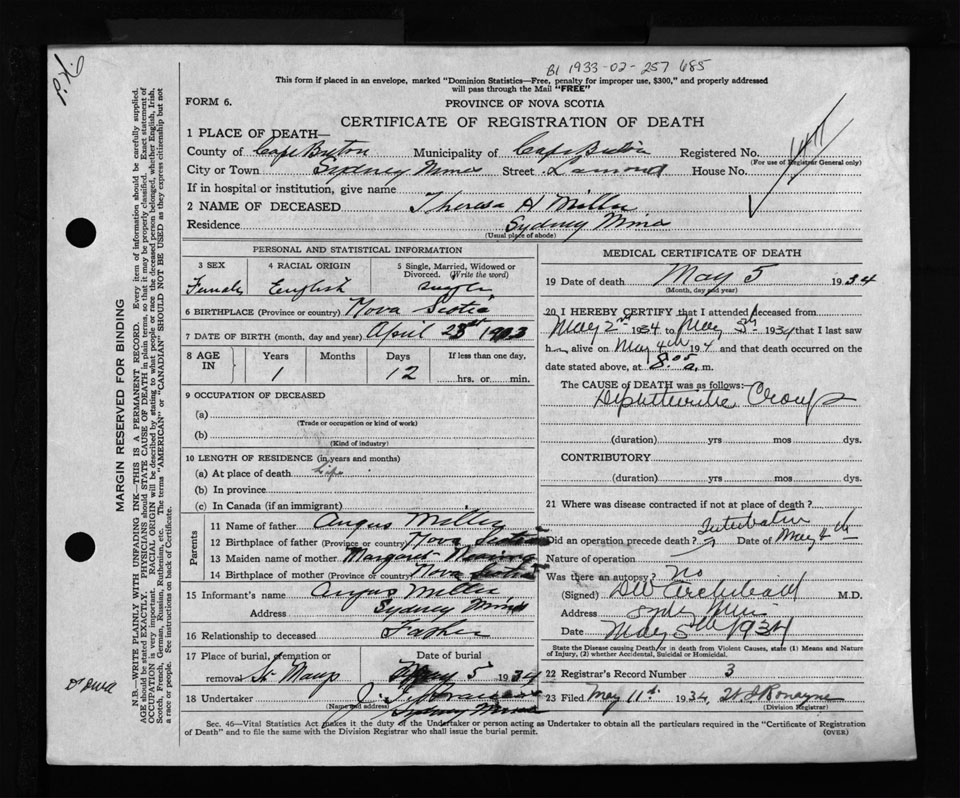 P.N.
B1 1933-02-257685
This form if placed in an envelope, marked "Dominion Statistics—Free, penalty for improper use, $300," and properly addressed
will pass through the Mail "FREE"
FORM 6.
PROVINCE OF NOVA SCOTIA
CERTIFICATE OF REGISTRATION OF DEATH
1 PLACE OF DEATH—
County of Cape Breton Municipality of Cape Breton Registered No.
(For use of Registrar General only)
City or Town Sydney Mines Street Lamond House No.
If in hospital or institution, give name
2 NAME OF DECEASED Theresa A Miller
Residence Sydney Mines
(Usual place of abode)
PERSONAL AND STATISTICAL INFORMATION
3 SEX 4 RACIAL ORIGIN 5 Single, Married, Widowed or
Divorced. (Write the word)
Female English Single
6 BIRTHPLACE (Province or country) Nova Scotia
7 DATE OF BIRTH (month, day and year) April 23rd 1933
8 AGE IN Years Months Days If less than one day,
1 12 hrs. or min.
9 OCCUPATION OF DECEASED
(a)
(Trade or occupation or kind of work)
(b)
(Kind of industry)
10 LENGTH OF RESIDENCE (in years and months)
(a) At place of death Life
(b) In province
(c) In Canada (if an immigrant)
Parents
11 Name of father Angus Miller
12 Birthplace of father (Province or country) Nova Scotia
13 Maiden name of mother Margaret
14 Birthplace of mother (Province or country) Nova Scotia
15 Informant's name Angus Miller
Address Sydney Mines
16 Relationship to deceased Father
17 Place of burial, cremation or Date of burial
removal St Marys May 5 1934
18 Undertaker
(Name and address) Sydney Mines
MEDICAL CERTIFICATE OF DEATH
19 Date of death May 5 1934
(Month, day and year)
20 I HEREBY CERTIFY that I attended deceased from
May 2nd 1934 to May 5th 1934 that I last saw
h alive on May 4th 194 and that death occurred on
date stated above, at 8.05 a. m.
The CAUSE OF DEATH was as follows:—
Diphtheritic Croup
(duration) yrs mos dys.
CONTRIBUTORY
(duration) yrs mos dys.
21 Where was disease contracted if not at place of death?
Intubation
Did an operation precede death? Date of May 4th
Nature of operation
Was there an autopsy? no
(Signed) DW Archibald M.D.
Address Sydney Mines
Date May 5th 1934
State the Disease causing Death, or in death from Violent Causes, state (1) Means and Nature
of Injury, (2) whether Accidental, Suicidal or Homicidal.
22 Registrar's Record Number 3
23 Filed May 11th 1934, Ronayne
(Division Registrar)
Sec. 46—Vital Statistics Act makes it the duty of the Undertaker or person acting as Undertaker to obtain all the particulars required in the "Certificate of Registration
of Death" and to file the same with the Division Registrar who shall issue the burial permit.
(OVER)
MARGIN RESERVED FOR BINDING
N.B.—WRITE PLAINLY WITH UNFADING INK—THIS IS A PERMANENT RECORD. Every item of information should be carefully supplied.
AGE should be stated EXACTLY. PHYSICIANS should STATE CAUSE OF DEATH in plain terms, so that it may be properly classified. Exact statement of
OCCUPATION is very important. RACIAL ORIGIN will be described by stating to what people or race the deceased person belonged, whether English, Irish,
Scotch, French, German, Russian, Ruthenian, etc. The terms "AMERICAN" or "CANADIAN" SHOULD NOT BE USED as they express citizenship but not
a race or people. See instructions on back of Certificate.